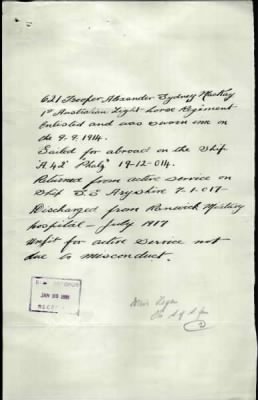 621 Trooper Alexander Sydney MacKay
1st Australian Light Horse Regiment
Enlisted and was sworn in on
the 9.9.1914.
Sailed for abroad on the Ship
"A.42" 19-12-014.
Returned from active service on
Ship S.S Aryshire 7-1-017-
Discharged from Renwick Military
hospital - July 1917
Unfit for active service not
due to misconduct.
JAN